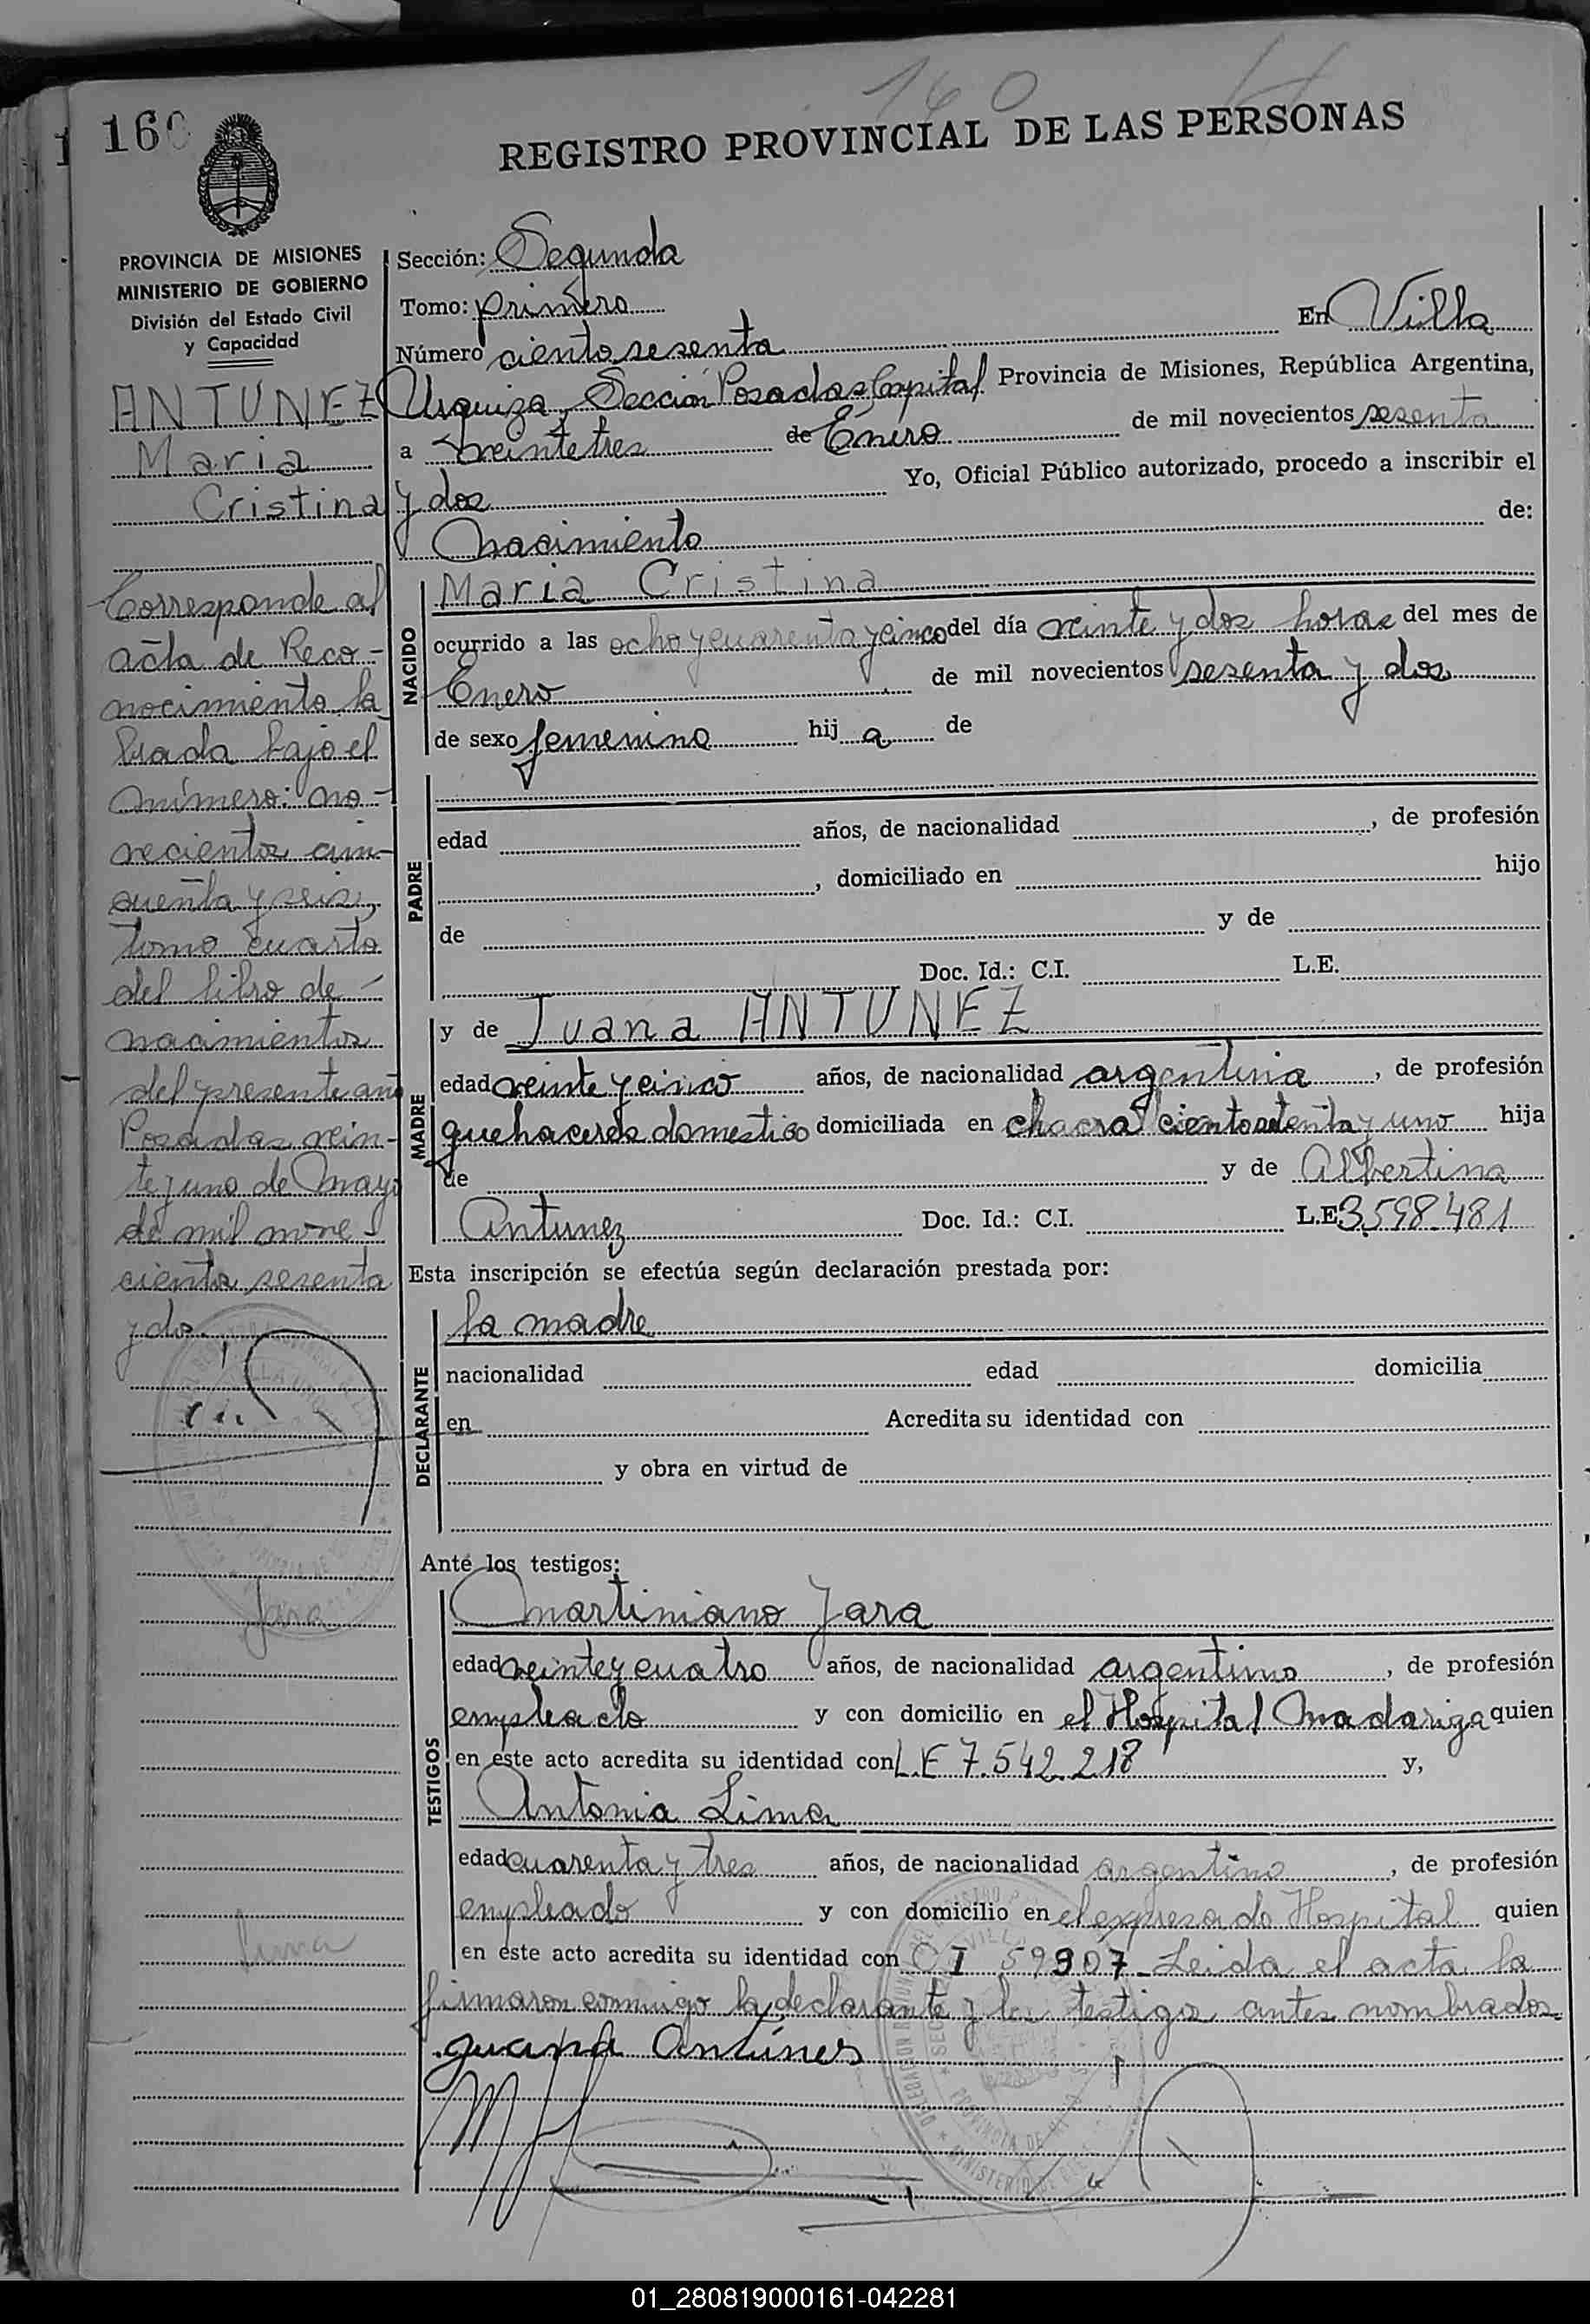 160
160
REGISTRO PROVINCIAL DE LAS PERSONAS
PROVINCIA DE MISIONES
MINISTERIO DE GOBIERNO
División del Estado Civil
y Capacidad
ANTUNEZ
Maria
Cristina
Corresponde al
acta de Reco-
nocimiento la
brada bajo el
número: no-
vecientos cin-
cuenta y seis,
tomo cuarto
del libro de
nacimientos
del presente año
Posadas vein-
te y uno de Mayo
de mil nove
cientos sesenta
y dos.
Jara
Lima
Sección: Segunda
Tomo: primero
Número ciento sesenta En Villa
Urquiza, Sección Posadas, Capital Provincia de Misiones, República Argentina,
a veintetres de Enero de mil novecientos sesenta
y dos Yo, Oficial Público autorizado, procedo a inscribir el
Nacimiento de:
NACIDO
Maria Cristina
ocurrido a las ocho y cuarenta y cinco del día veinte y dos horas del mes de
Enero de mil novecientos sesenta y dos
de sexo femenino hija de
PADRE
edad años, de nacionalidad , de profesión
, domiciliado en hijo
de y de
Doc. Id.: C.I. L.E.
MADRE
y de Juana ANTUNEZ
edad veinte y cinco años, de nacionalidad argentina, de profesión
quehaceres domestico domiciliada en chacra ciento setenta y uno hija
de y de Albertina
Antunez Doc. Id.: C.I. L.E 3.598.481
Esta inscripción se efectúa según declaración prestada por:
DECLARANTE
la madre
nacionalidad edad domicilia
en Acredita su identidad con
y obra en virtud de
Ante los testigos:
TESTIGOS
Martiniano Jara
edad veinte y cuatro años, de nacionalidad argentino, de profesión
empleado y con domicilio en el Hospital Madariga quien
en este acto acredita su identidad con L.E 7.542.218 y,
Antonia Lima
edad cuarenta y tres años, de nacionalidad argentino, de profesión
empleado y con domicilio en el expresado Hospital quien
en este acto acredita su identidad con CI 59907_ Leida el acta la
firmaron conmigo la declarante y los testigos antes nombrados
Juana Antúnes
01_280819000161-042281